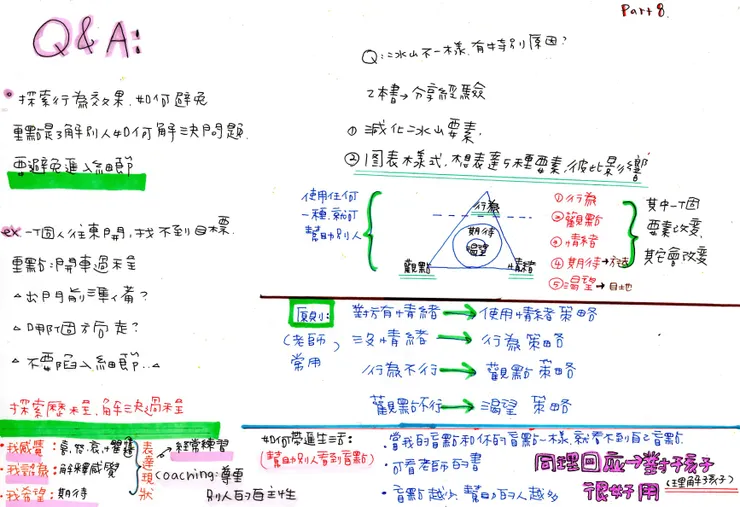 Part 8.
Q&A:
探索行為效果,如何避免
重點是了解別人如何解決問題.
要避免進入細節
ex 一個人往東開,找不到目標.
重點:開車過程
△出門前準備?
△哪個方向走?
△不要陷入細節...△
探索歷程,解決過程
•我感覺:
•我詮釋:解釋感覺
•我希望:期待
表達現狀
→經常練習
Coaching:尊重
別人的自主性
Q:冰山不一樣,有特別原因?
2本書→分享經驗
①減化冰山要素.
②圖表樣式,想表達5種要素,彼此影響
使用任何
一種,就可
幫助別人
行為
期待
渴望
觀點
情緒
①行為
②觀點
③情緒
④期待→方法
⑤渴望→目地
其中一個
要素改變,
其它會改變
原則:
(老師)
常用
對方有情緒→使用情緒策略
沒情緒→行為策略
行為不行→觀點策略
觀點不行→渴望策略
如何帶進生活:
(幫助別人看到盲點)
•當我的盲點和你的盲點一樣,就看不到自己盲點.
•可看老師的書
•盲點越少,幫助的人越多
同理回應→對孩子
很好用
(理解孩子)